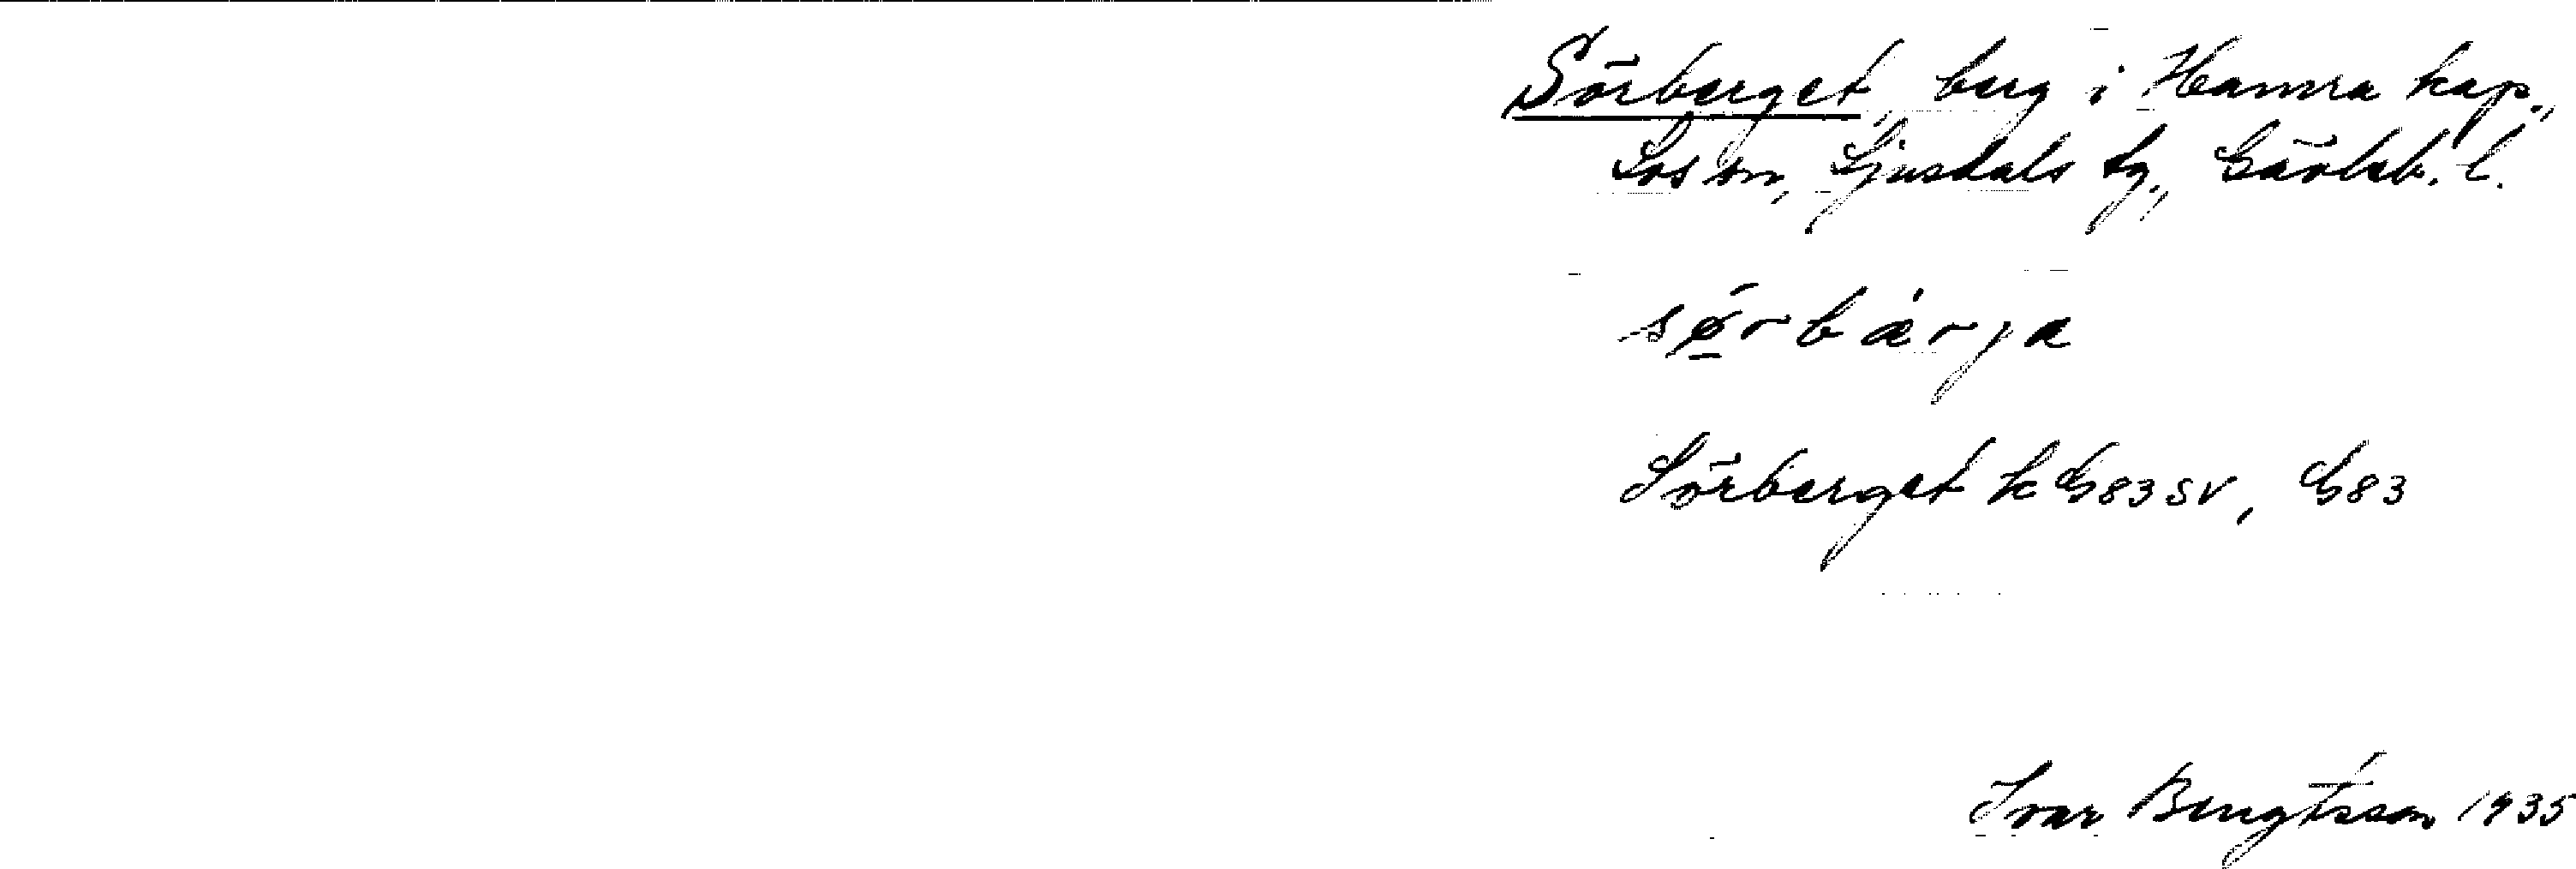 Sörberget, berg i Hamra kap.,
Los sn, Ljusdals tg., Gävleb. l.
sǿ̱rbàrja
Sörberget k G83SV, G83
Ivar Bengtsson 1935